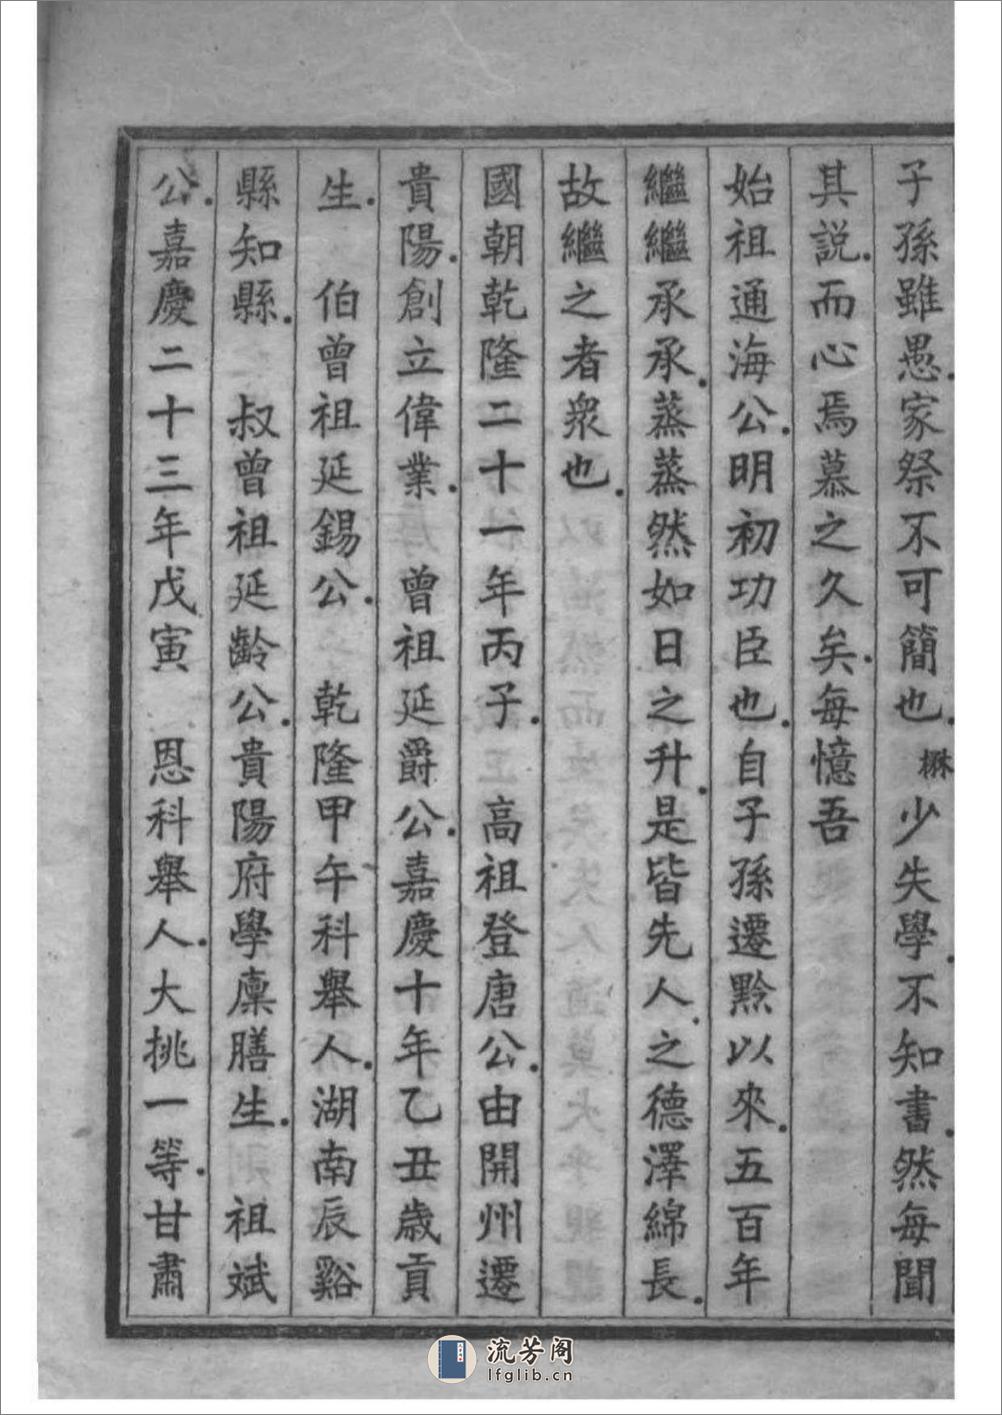 子孫雖愚.家祭不可簡也.楙少失學.不知書.然每聞
其說.而心焉慕之久矣.每憶吾
始祖通海公.明初功臣也.自子孫遷黔以來.五百年
繼繼承承.蒸蒸然如日之升.是皆先人.之德澤綿長.
故繼之者衆也.
國朝乾隆二十一年丙子.高祖登唐公.由開州遷
貴陽.創立偉業.曾祖延爵公.嘉慶十年乙丑歲貢
生.　伯曾祖延錫公.　乾隆甲午科舉人.湖南辰谿
縣知縣.　叔曾祖延齡公.貴陽府學廩膳生.　祖斌
公.嘉慶二十三年戊寅　恩科舉人.大挑一等.甘肅
流芳阁
lfglib.cn